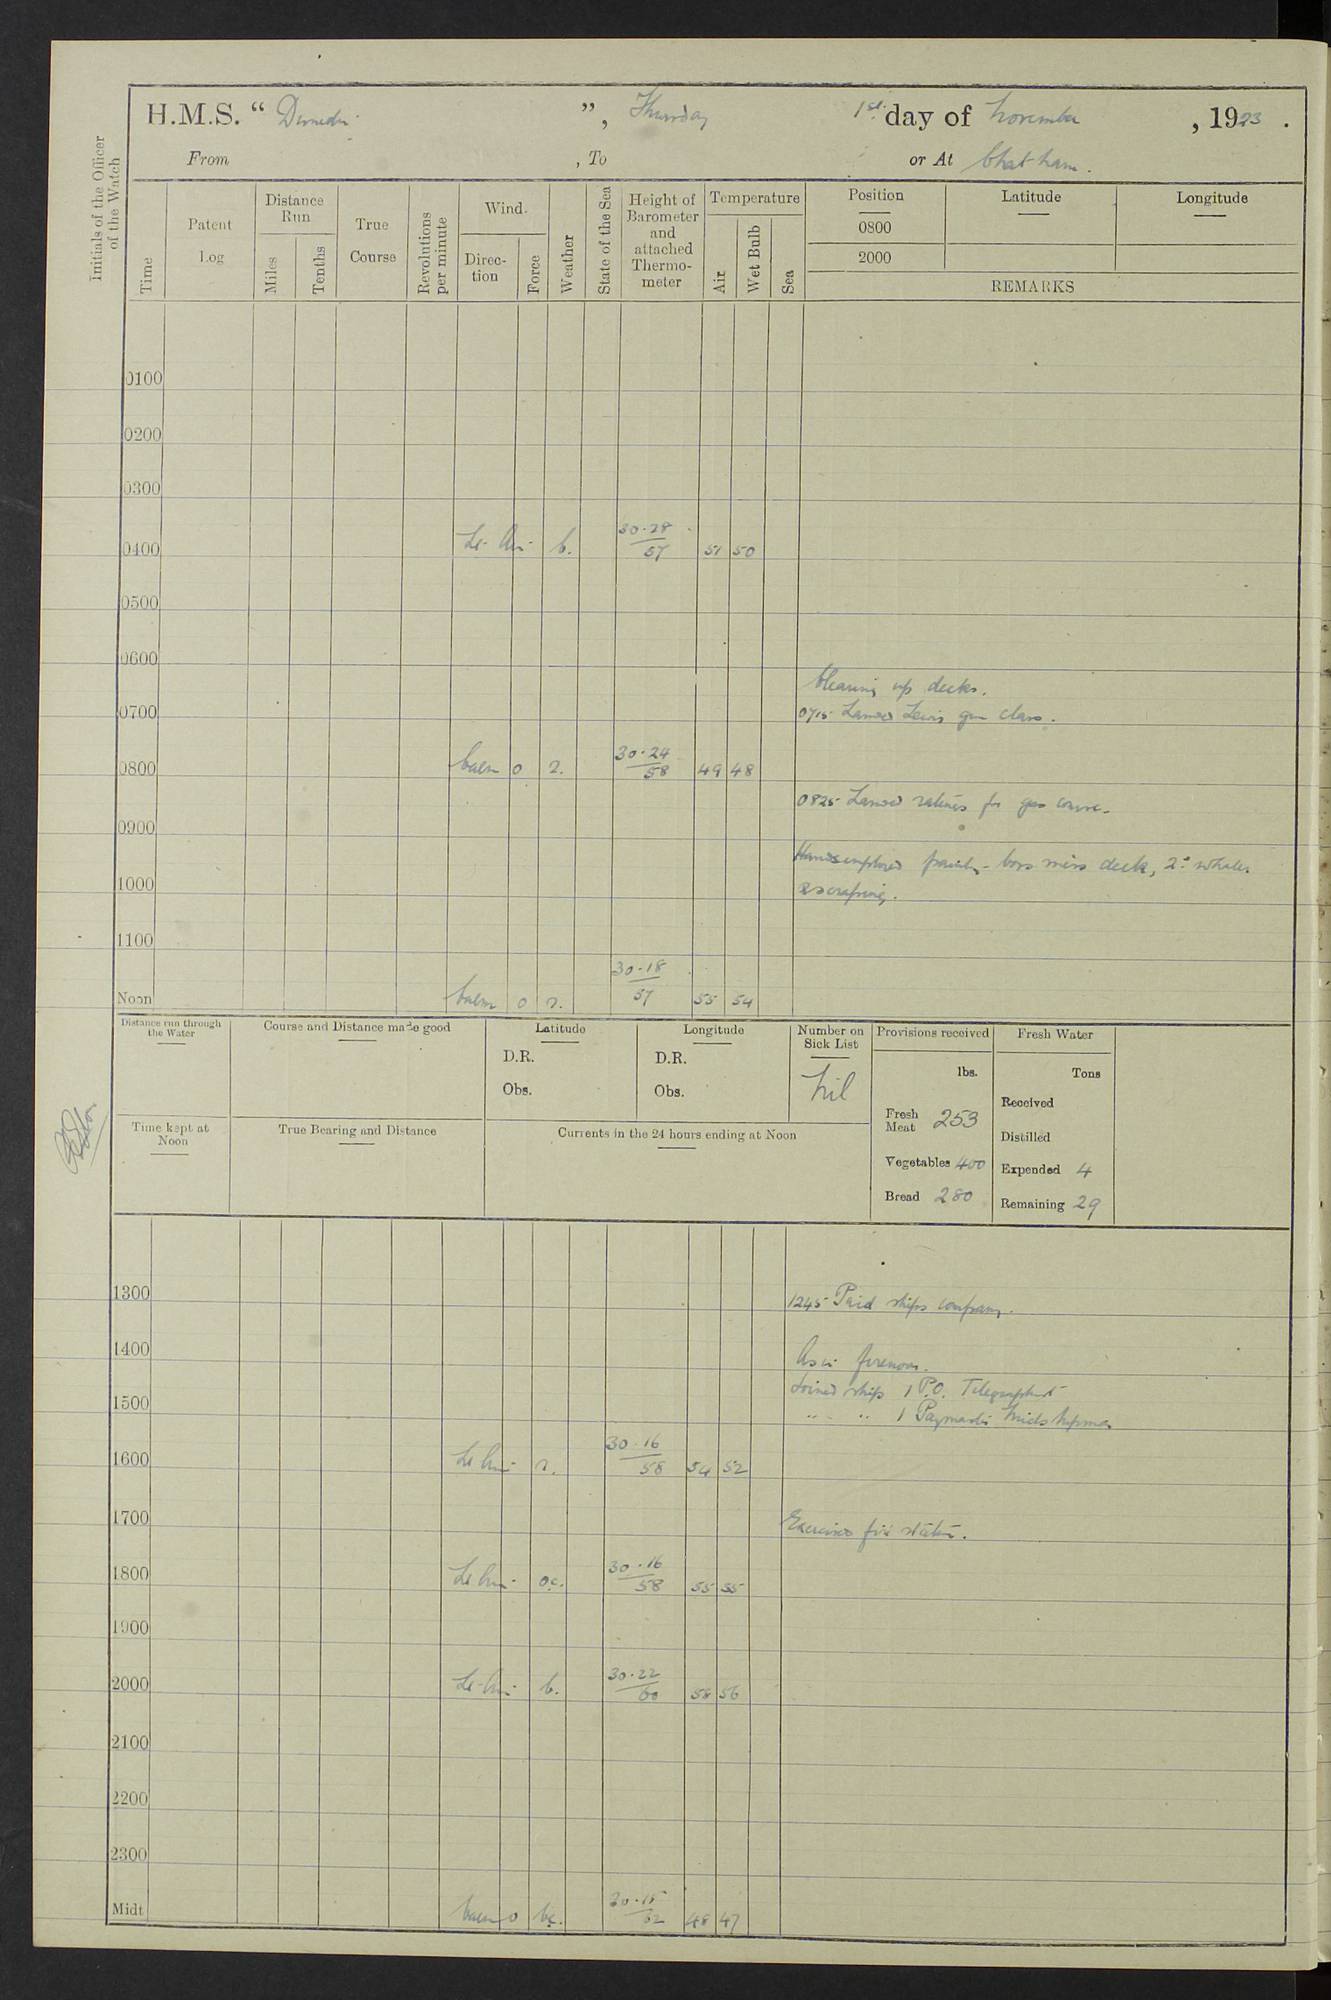 H.M.S. " Dunedin ", Thursday 1st day of November , 1923 .
From , To or At Chatham.
Initials of the Officer of the Watch
Time
Patent Log
Distance Run
Miles
Tenths
True Course
Revolutions per minute
Wind.
Direction
Force
Weather
State of the Sea
Height of Barometer and attached Thermometer
Temperature
Air
Wet Bulb
Sea
Position Latitude Longitude
0800
2000
REMARKS
0100
0200
0300
0400 Lt. Air b. 30.28 57 51 50
0500
0600
Clearing up decks.
0700 0715 Landed Lewis gun class.
0800 Calm 0 r. 30.24 58 49 48
0825 Landed ratings for gas course.
0900
Hands employed painting boys mess deck, 2nd whaler
1000 & scraping.
1100
Noon Calm 0 r. 30.18 57 55 54
Distance run through the Water
Course and Distance made good
Latitude
D.R.
Obs.
Longitude
D.R.
Obs.
Number on Sick List
Nil
Provisions received
lbs.
Fresh Meat 253
Vegetables 400
Bread 280
Fresh Water
Tons
Received
Distilled
Expended 4
Remaining 29
Time kept at Noon
True Bearing and Distance
Currents in the 24 hours ending at Noon
1300 1245 Paid ships company.
1400 As in forenoon.
Joined ship 1 P.O. Telegraphist
1500 " " 1 Paymaster Midshipman
1600 Lt Air r. 30.16 58 54 52
1700 Exercised fire stations.
1800 Lt Air oc. 30.16 58 55 55
1900
2000 Lt Air b. 30.22 60 58 56
2100
2200
2300
Midt Calm 0 bc. 30.15 62 48 47